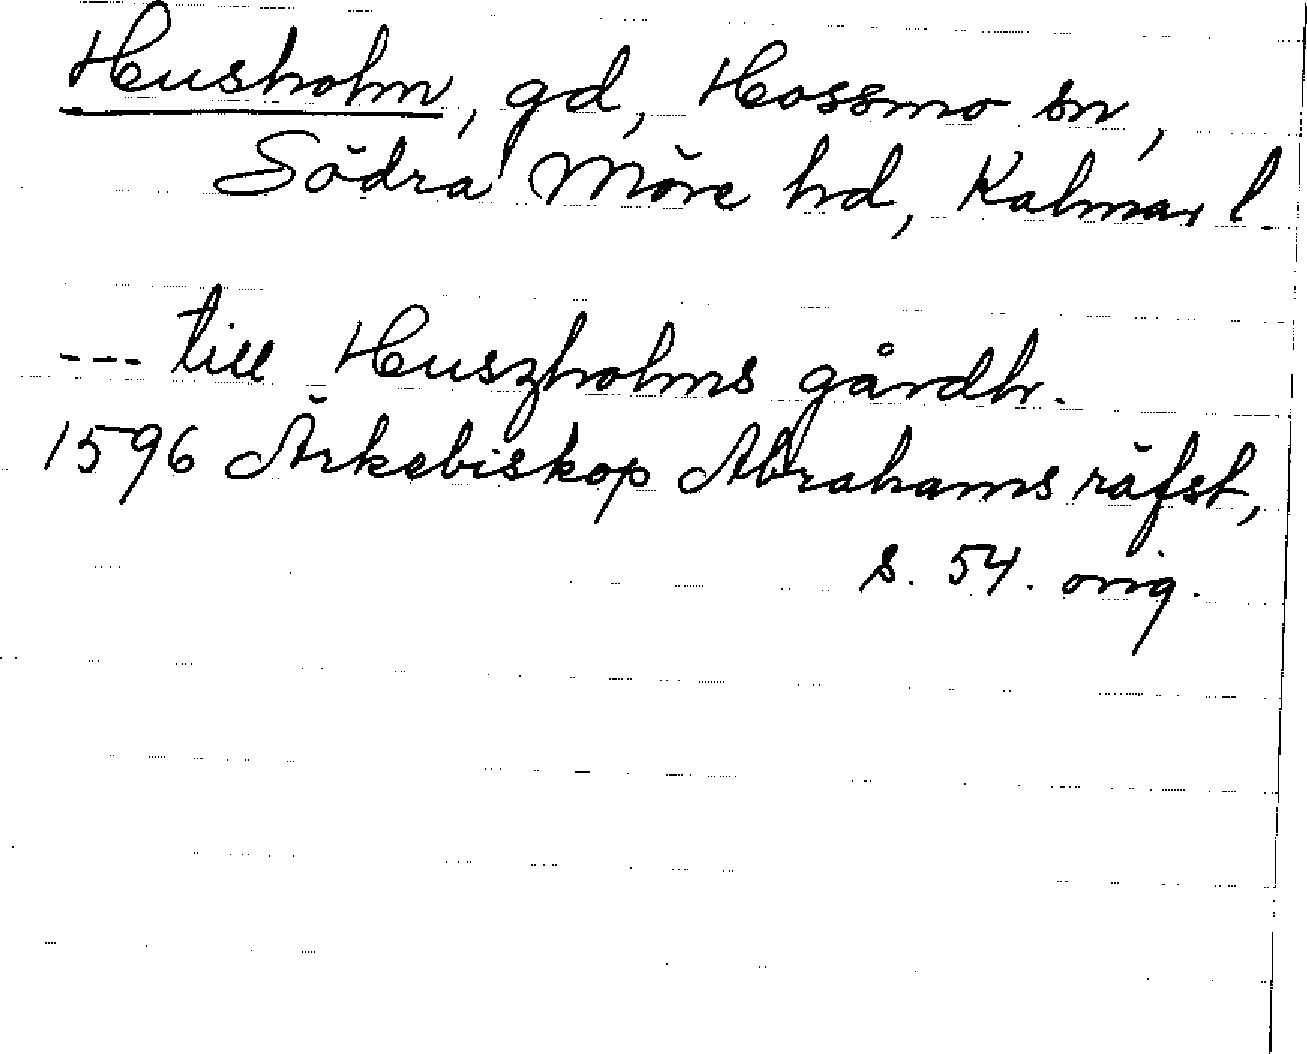 Husholm, gd, Hossmo sn,
Södra Möre hd, Kalmar l.
--- till Huszholms gårdh.
1596 Ärkebiskop Abrahams räfst,
s. 54. orig.